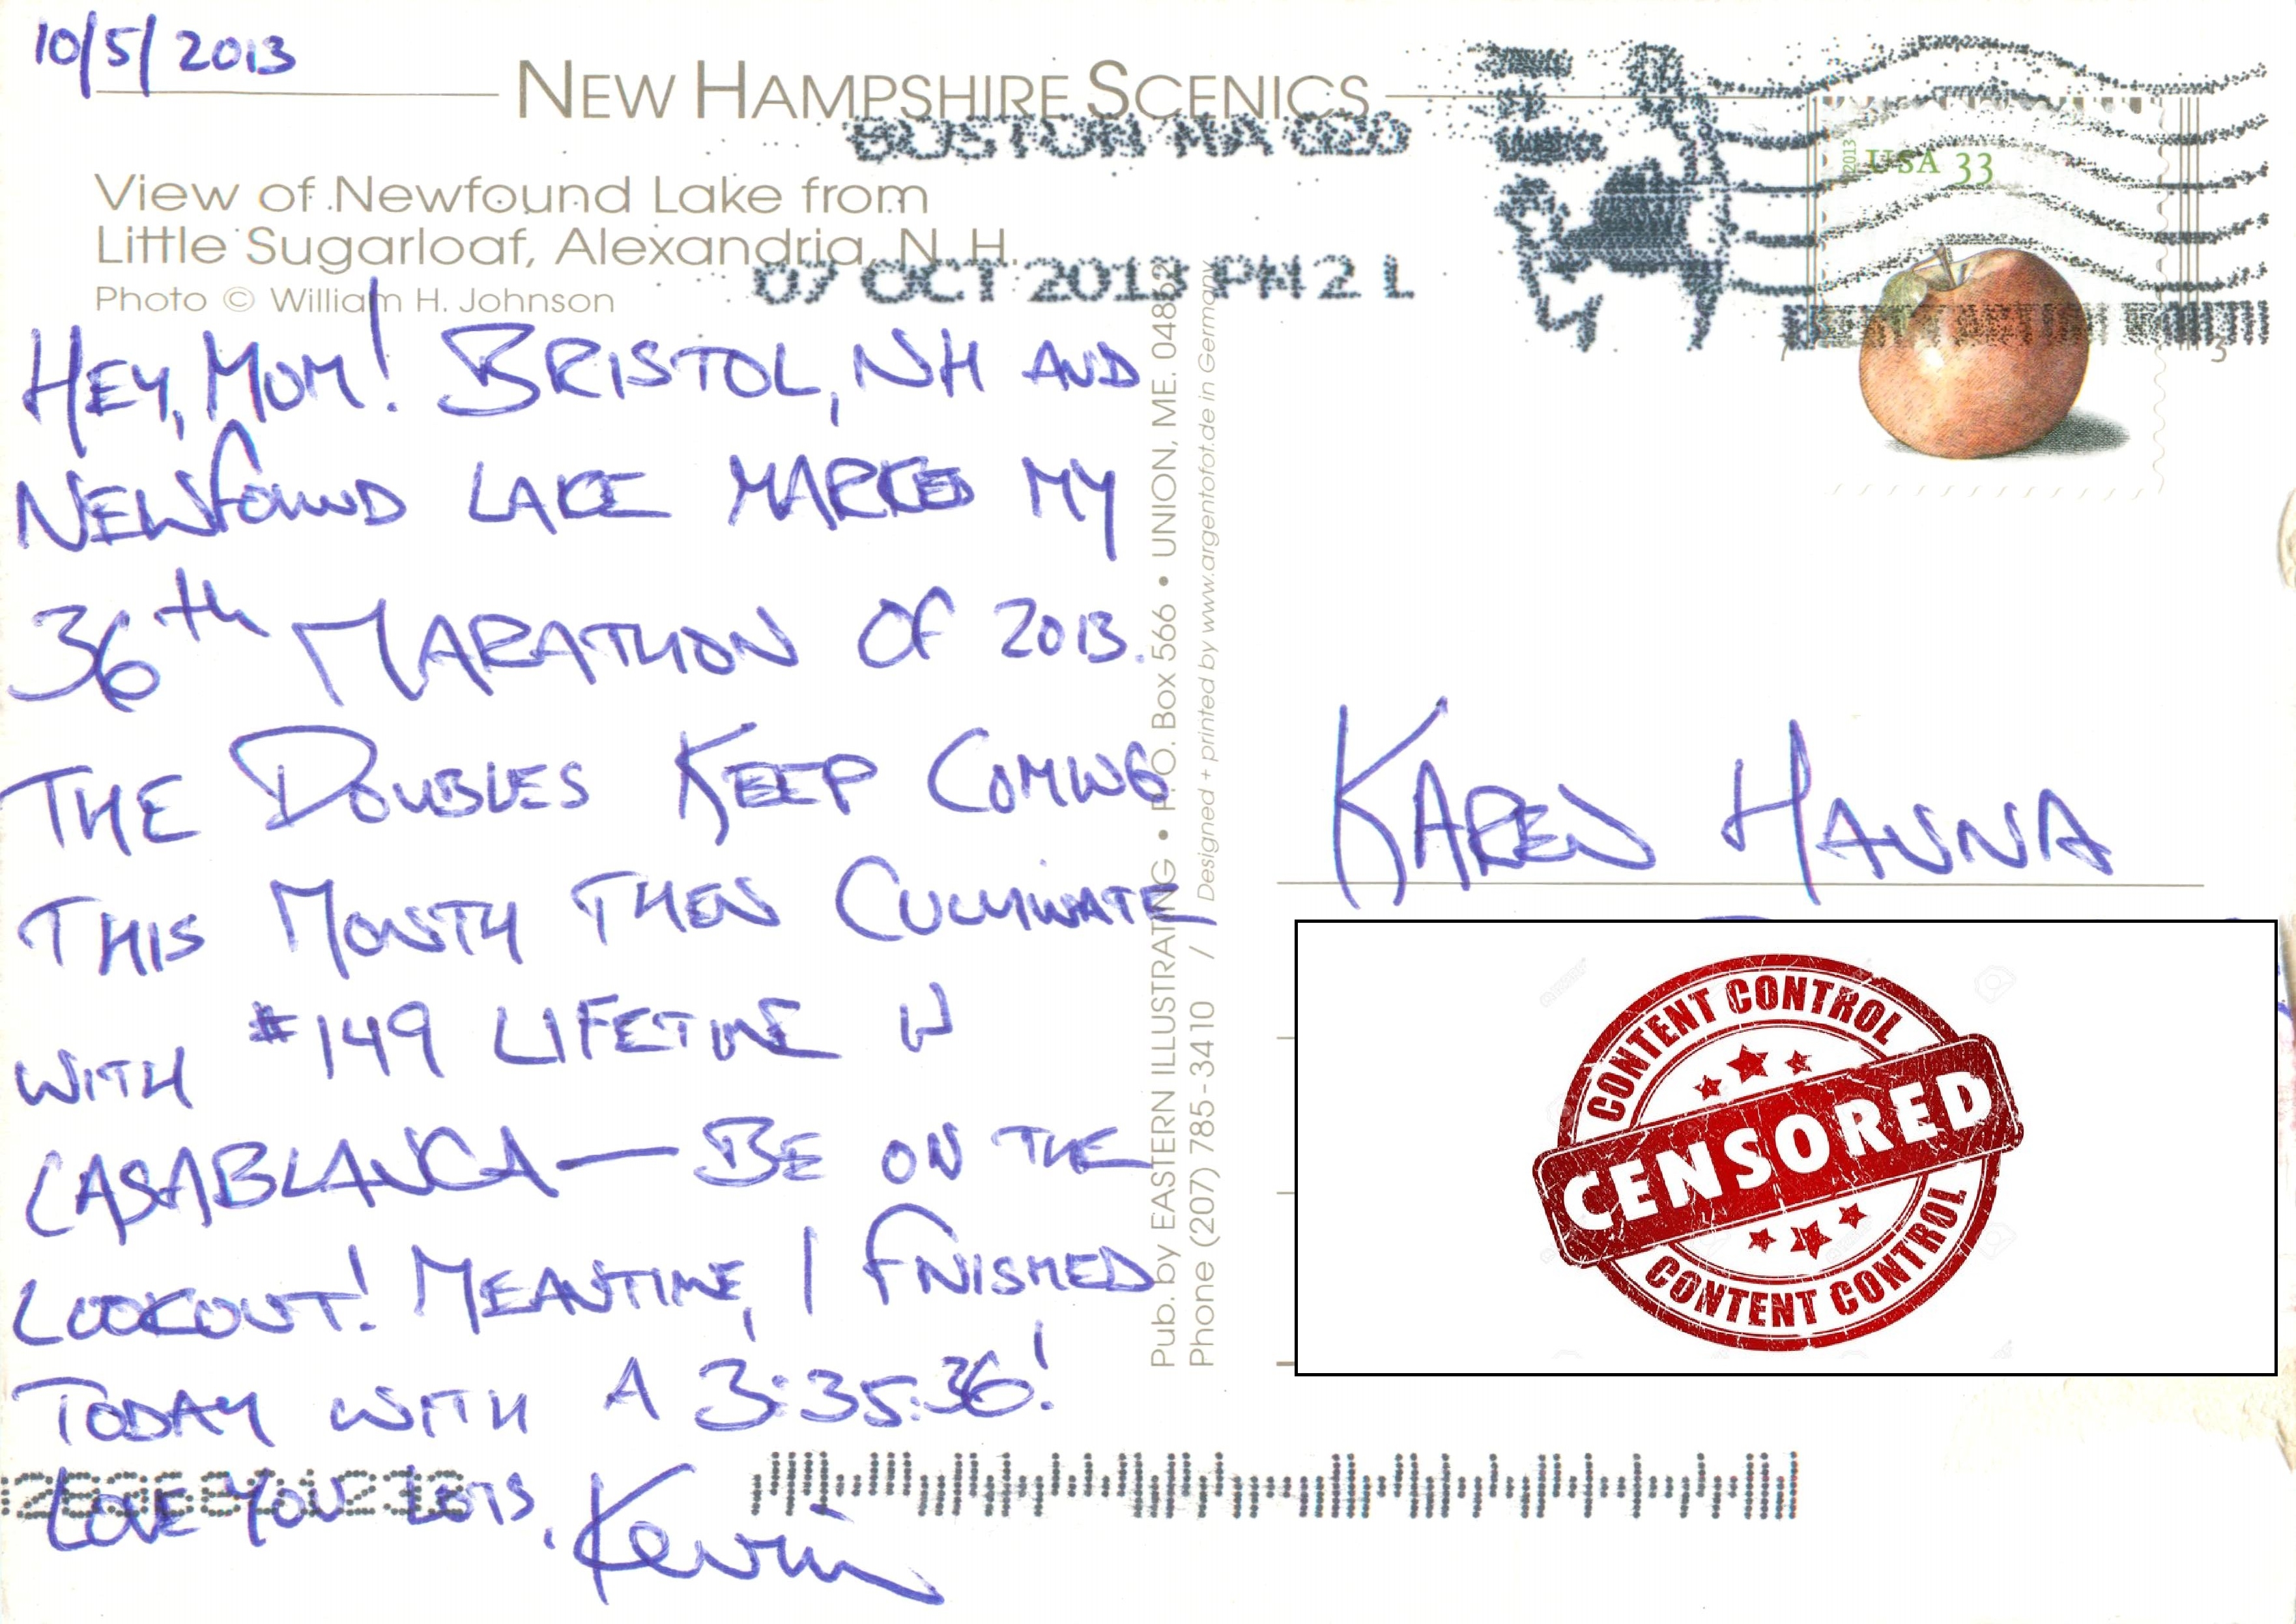 10/5/2013
NEW HAMPSHIRE SCENICS
BOSTON MA 020
07 OCT 2013 PM 2 L
2013
USA 33
View of Newfound Lake from
Little Sugarloaf, Alexandria, N.H.
Photo © William H. Johnson
HEY, MOM! BRISTOL, NH AND
NEWFOUND LAKE MARKED MY
36th MARATHON OF 2013.
THE DOUBLES KEEP COMING
THIS MONTH THEN CULMINATE
WITH #149 LIFETIME IN
CASABLANCA — BE ON THE
LOOKOUT! MEANTIME, I FINISHED
TODAY WITH A 3:35:36!
LOVE YOU LOTS,
Kevin
Pub. by EASTERN ILLUSTRATING • P.O. Box 566 • UNION, ME. 04862
Phone (207) 785-3410 / Designed + printed by www.argentofot.de in Germany
KAREN HANNA
CONTENT CONTROL
CENSORED
CONTENT CONTROL